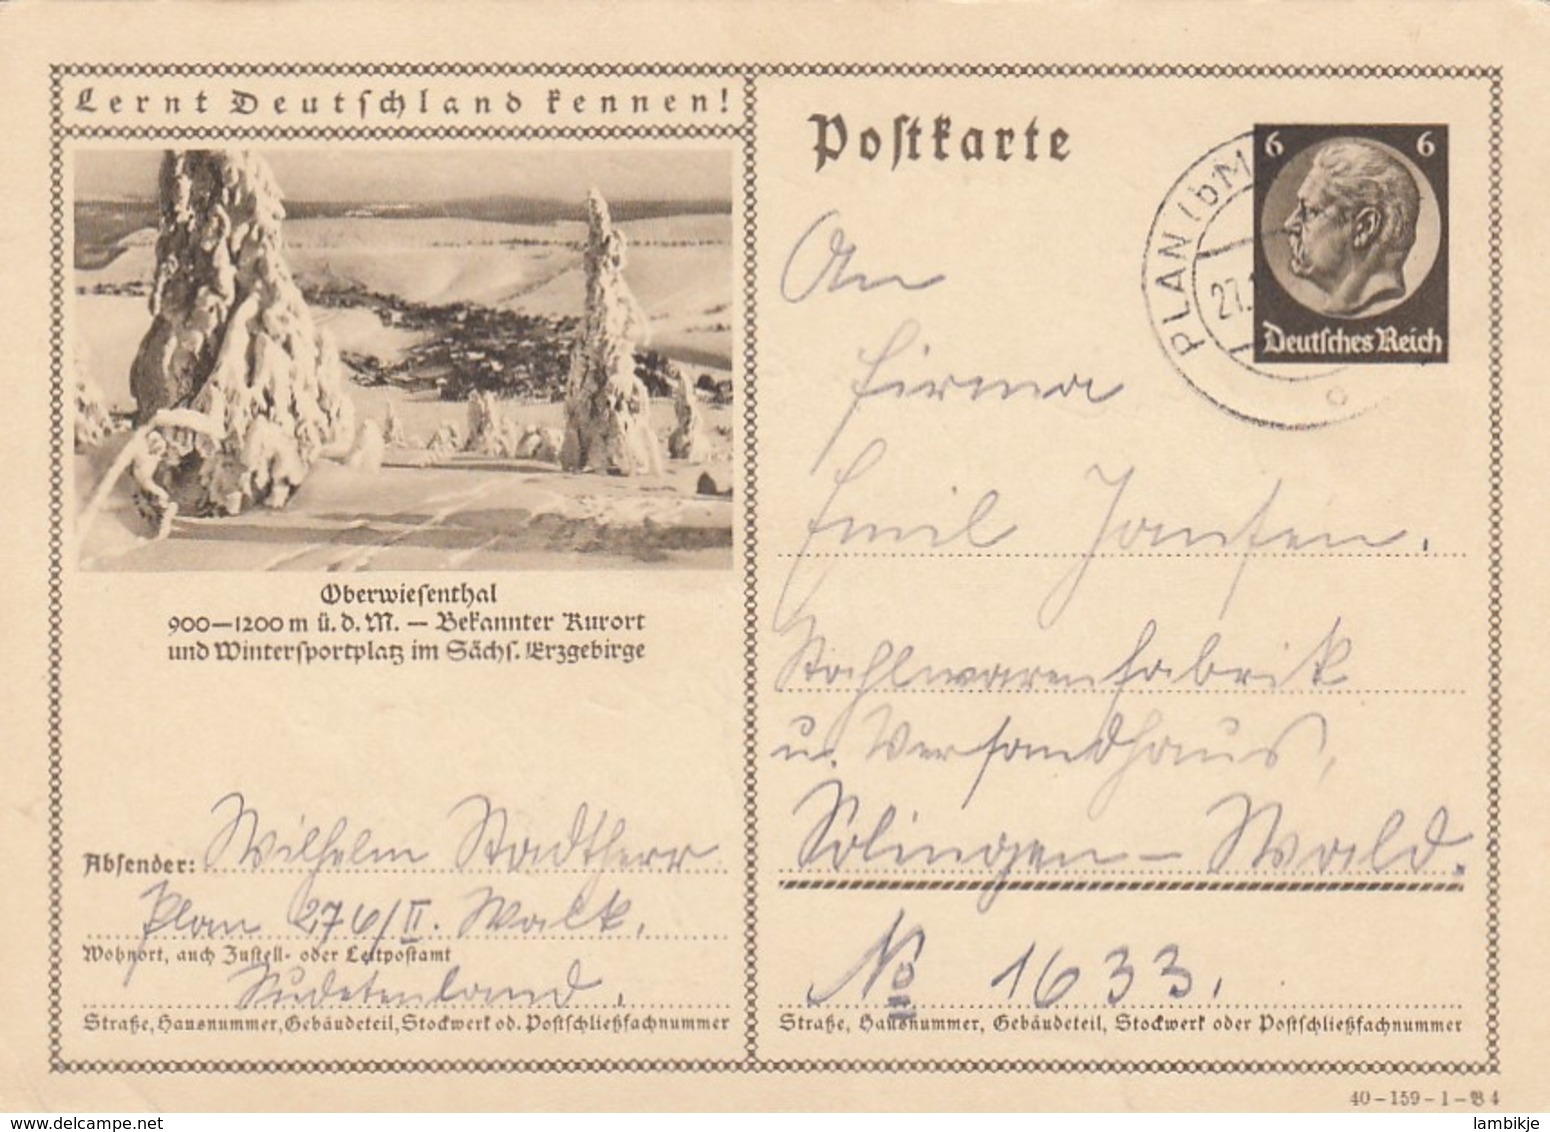 Lernt Deutschland kennen!
Oberwiesenthal
900—1200 m ü. d. M. — Bekannter Kurort
und Wintersportplatz im Sächs. Erzgebirge
Absender: Wilhelm Stadtherr
Plan 276/II. Walk.
Wohnort, auch Zustell- oder Leitpostamt
Sudetenland.
Straße, Hausnummer, Gebäudeteil, Stockwerk od. Postschließfachnummer
Postkarte
6 6
Deutsches Reich
PLAN (b M
27.
An
Firma
Emil Jansen.
Stahlwarenfabrik
u. Versandhaus,
Solingen – Wald.
No 1633.
Straße, Hausnummer, Gebäudeteil, Stockwerk oder Postschließfachnummer
40 – 159 – 1 – B 4
www.delcampe.net
lambikje